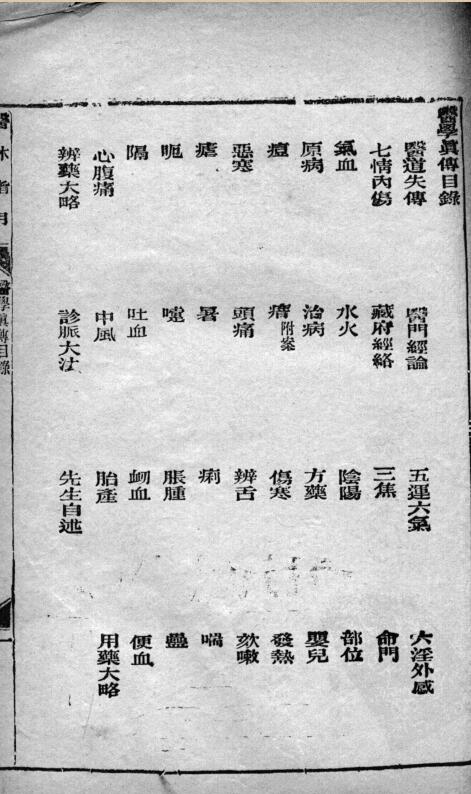 醫學眞傳目錄
醫道失傳 醫門經論 五運六氣 六淫外感
七情內傷 藏府經絡 三焦 命門
氣血 水火 陰陽 部位
原病 治病 方藥 嬰兒
痘 瘄附案 傷寒 發熱
惡寒 頭痛 辨舌 欬嗽
瘧 暑 痢 喘
呃 噎 脹腫 蠱
隔 吐血 衂血 便血
心腹痛 中風 胎產 用藥大略
辨藥大略 診脈大法 先生自述
醫林指月 醫學眞傳目錄